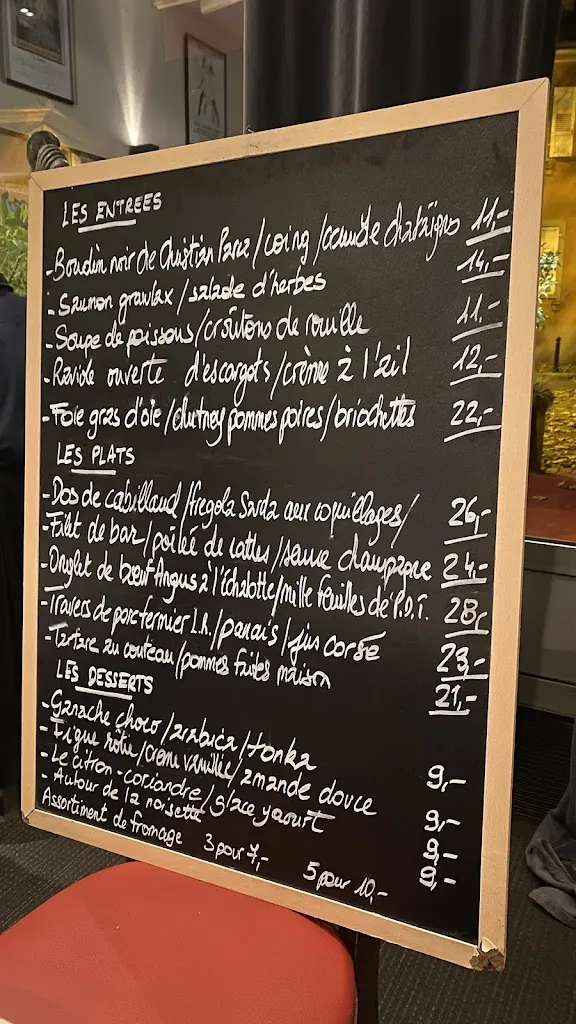 LES ENTREES
- Boudin noir de Christian Parra / coing / chataîgno 11,-
- Saumon gravlax / salade d'herbes 14,-
- Soupe de poissons / croûtons de rouille 11,-
- Raviole ouverte d'escargots / crème à l'ail 12,-
- Foie gras d'oie / chutney pommes poires / briochettes 22,-
LES PLATS
- Dos de cabillaud / fregola Sarda aux coquillages / 26,-
- Filet de bar / poêlée de cattes / sauce champagne 24,-
- Onglet de bœuf Angus à l'échalotte / mille feuilles de P.D.T. 28,-
- Travers de porc fermier L.R. / panais / jus corsé 23,-
- Tartare au couteau / pommes frites maison 21,-
LES DESSERTS
- Ganache choco / arabica / tonka 9,-
- Figue rotie / crème vanillée / amande douce 9,-
- Le citron-coriandre / glace yaourt 9,-
- Autour de la noisette 9,-
Assortiment de fromage 3 pour 7,- 5 pour 10,-